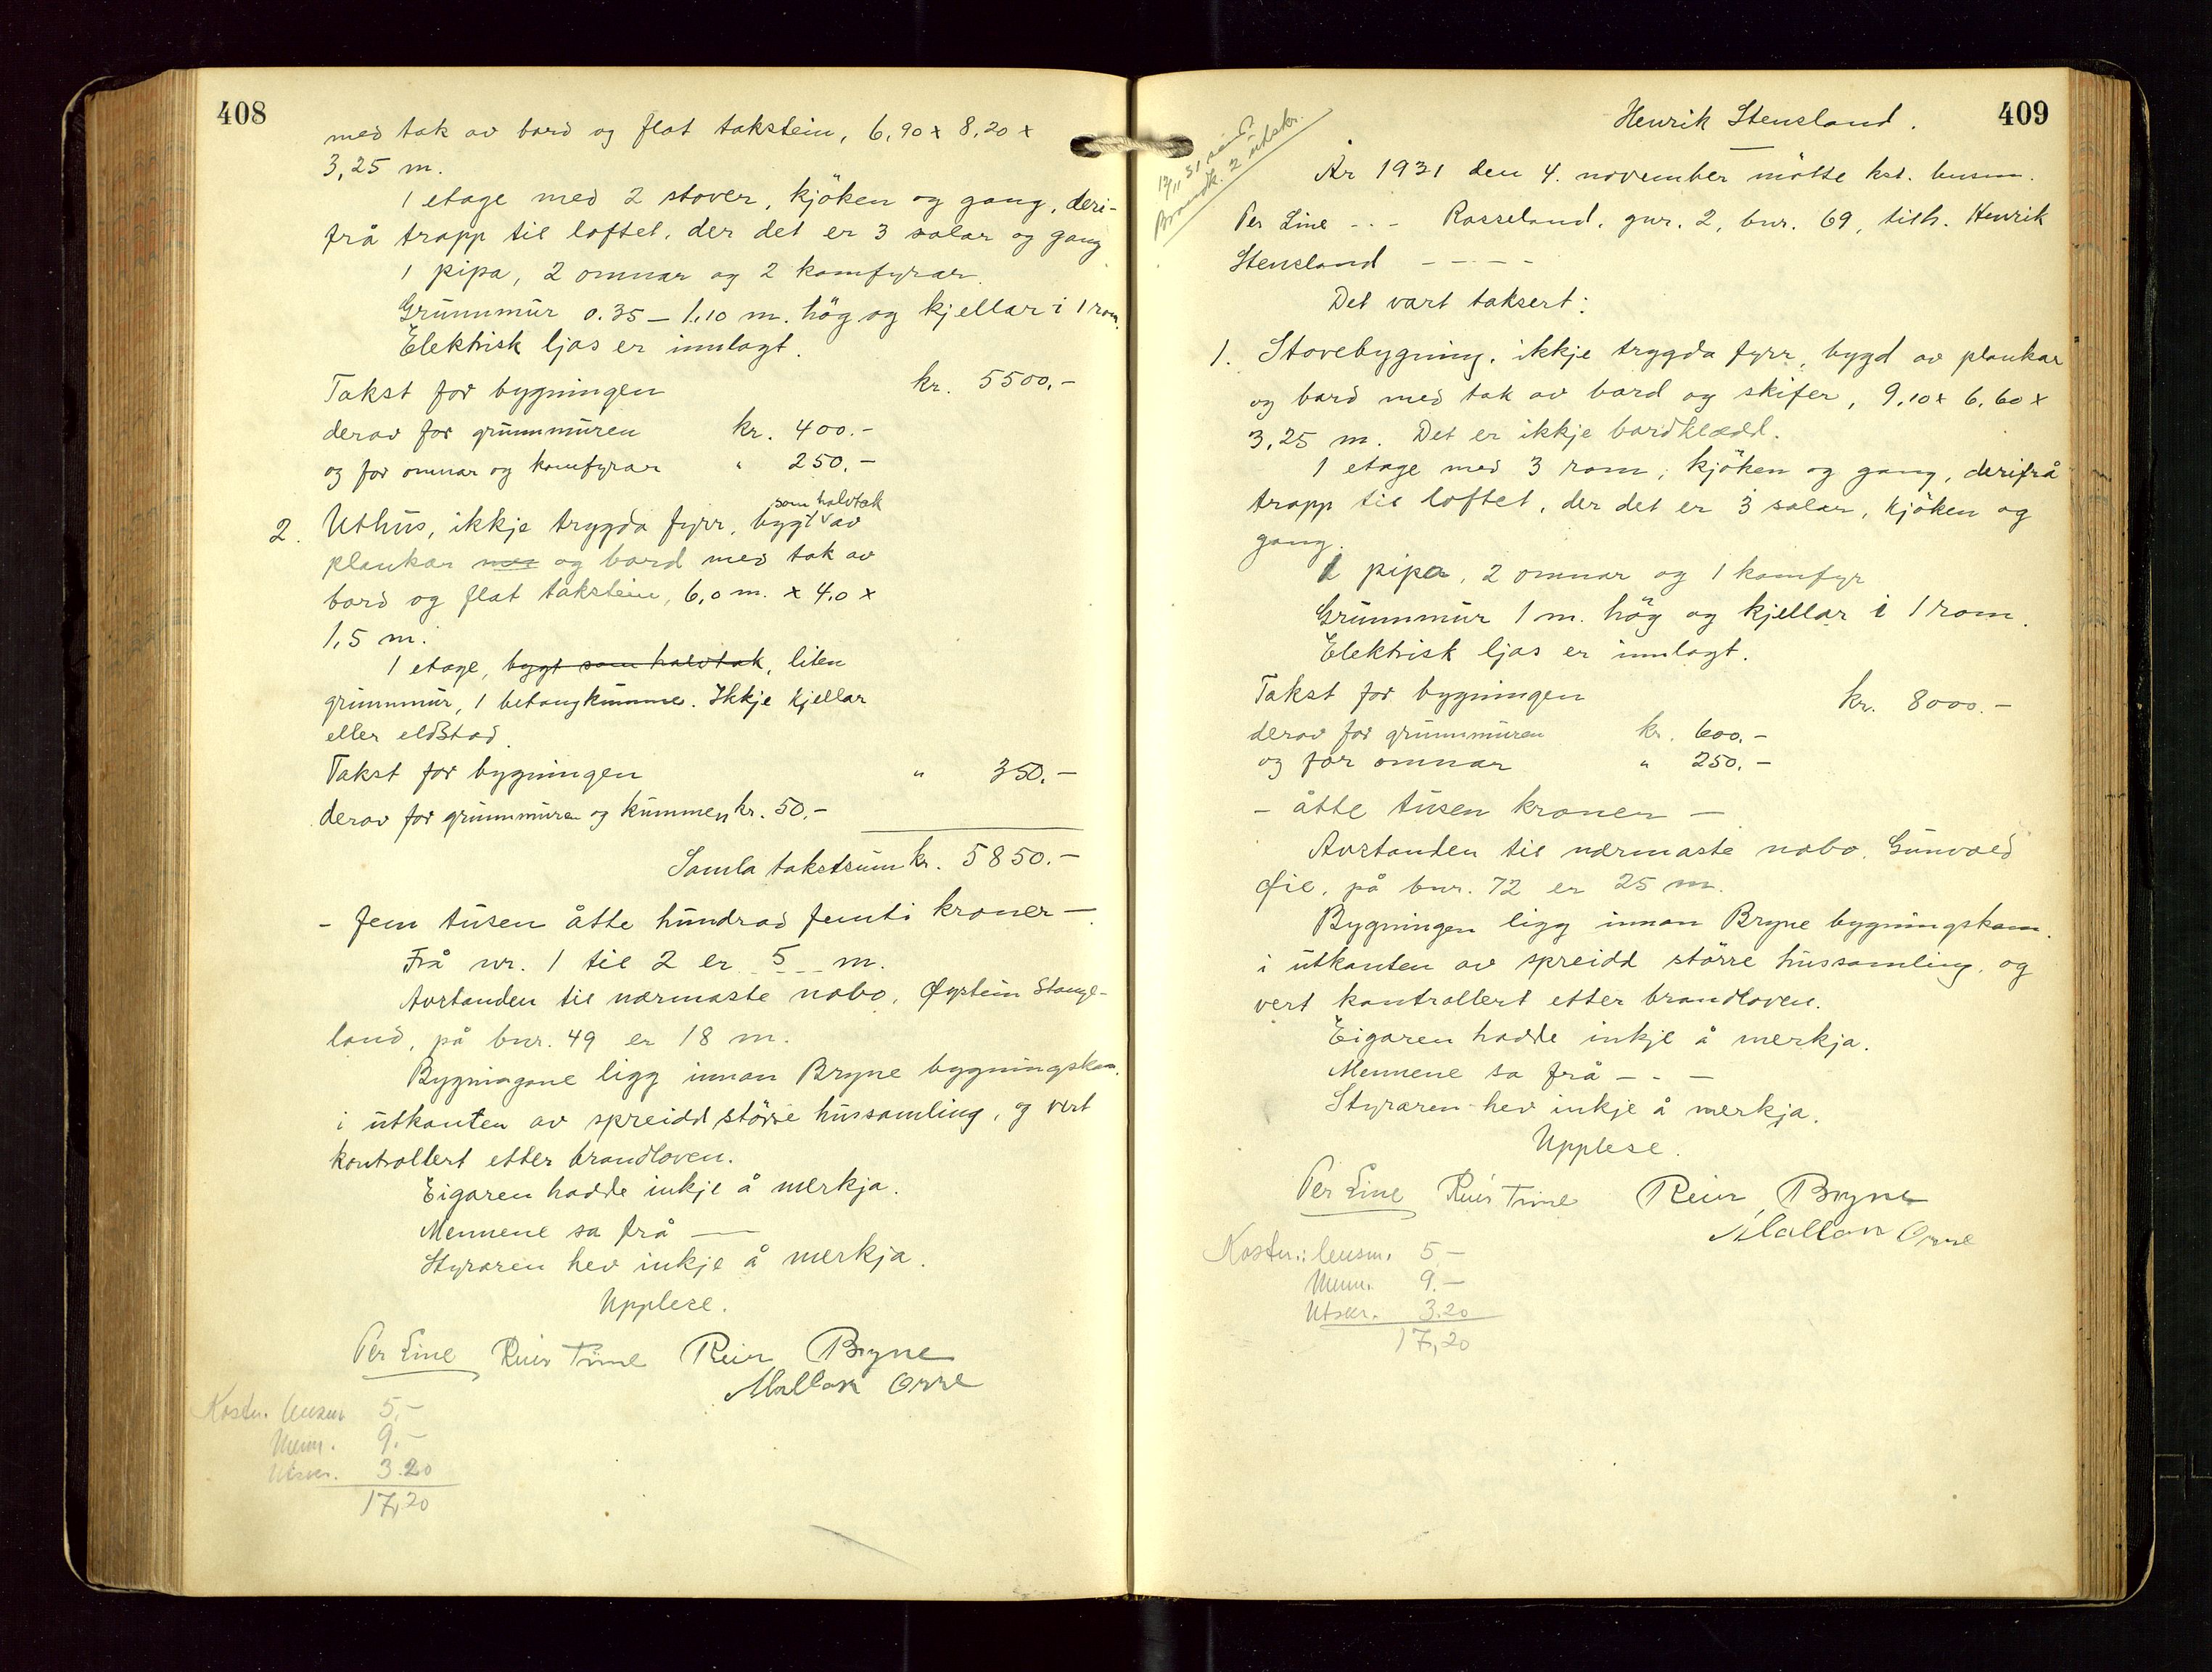 408
med tak av bord og flat takstein, 6,90 x 8,20 x
3,25 m.
1 etage med 2 stover, kjöken og gang, deri-
frå trapp til loftet, der det er 3 salar og gang
1 pipa, 2 omnar og 2 komfyrar.
Grunnmur 0.35 – 1,10 m. hög og kjellar i 1 rom.
Elektrisk ljos er innlagt.
Takst for bygningen kr. 5500,-
derav for grunnmuren kr. 400.-
og for omnar og komfyrar " 250,-
som halvtak
2. Uthus, ikkje trygda fyrr, bygt av
plankar med og bord med tak av
bord og flat takstein, 6,0 m. x 4,0 x
1,5 m.
1 etage, bygt som halvtak, liten
grunnmur, 1 betongkumme. Ikkje kjellar
eller eldstad.
Takst for bygningen " 350.-
derav for grunnmuren og kummen kr. 50,-
Samla takstsum kr. 5850.-
- fem tusen åtte hundrad femti kroner -
Frå nr. 1 til 2 er 5 m.
Avstanden til nærmaste nabo, Øystein Stange-
land, på bnr. 49 er 18 m.
Bygningane ligg innan Bryne bygningskom.
i utkanten av spreidd större hussamling, og vert
kontrollert etter brandloven.
Eigaren hadde inkje å merkja.
Mennene sa frå —
Styraren hev inkje å merkja.
Upplese.
Per Line Reier Time Reier Bryne
Mallan Orre
Kostn. lensm. 5,-
Menn. 9.-
Utskr. 3.20
17,20
Henrik Stensland. 409
12/11 31 send
Brandk. 2 utskr.
År 1931 den 4. november mötte kst. lensm.
Per Line - - - Rosseland, gnr. 2, bnr. 69, tilh. Henrik
Stensland - - - - -
Det vart taksert:
1. Stovebygning, ikkje trygda fyrr, bygd av plankar
og bord med tak av bord og skifer, 9,10 x 6,60 x
3,25 m. Det er ikkje bordklædd.
1 etage med 3 rom, kjöken og gang, derifrå
trapp til loftet, der det er 3 salar, kjöken og
gang.
1 pipa, 2 omnar og 1 komfyr
Grunnmur 1 m. hög og kjellar i 1 rom.
Elektrisk ljos er innlagt.
Takst for bygningen kr. 8000.-
derav for grunnmuren kr. 600.-
og for omnar " 250.-
- åtte tusen kroner —
Avstanden til nærmaste nabo, Gunvald
Øie, på bnr. 72 er 25 m.
Bygningen ligg innan Bryne bygningskom.
i utkanten av spreidd större hussamling, og
vert kontrollert etter brandloven.
Eigaren hadde inkje å merkja.
Mennene sa frå - - -
Styraren hev inkje å merkja.
Upplese.
Per Line Reier Time Reier Bryne
Mallan Orre
Kostn.: lensm. 5-
Menn. 9.-
Utskr. 3.20
17,20